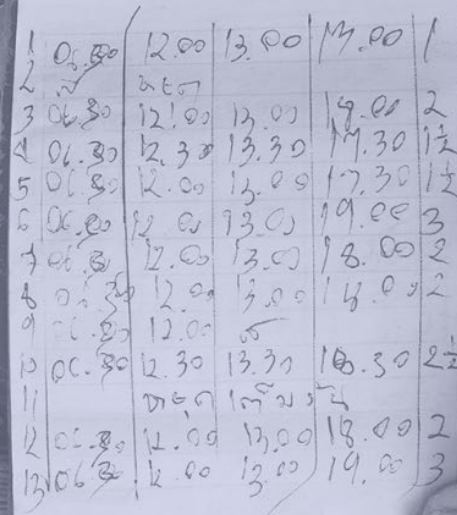 1 06.30 12.00 13.00 17.00 1
2 หยุด
3 06.30 12.00 13.00 18.00 2
4 06.30 12.30 13.30 17.30 1½
5 06.30 12.00 13.00 17.30 1½
6 06.00 12.00 13.00 19.00 3
7 06.30 12.00 13.00 18.00 2
8 06.30 12.00 13.00 18.00 2
9 06.30 12.00
10 06.30 12.30 13.30 18.30 2½
11 หยุด
12 06.30 12.00 13.00 18.00 2
13 06.30 12.00 13.00 19.00 3